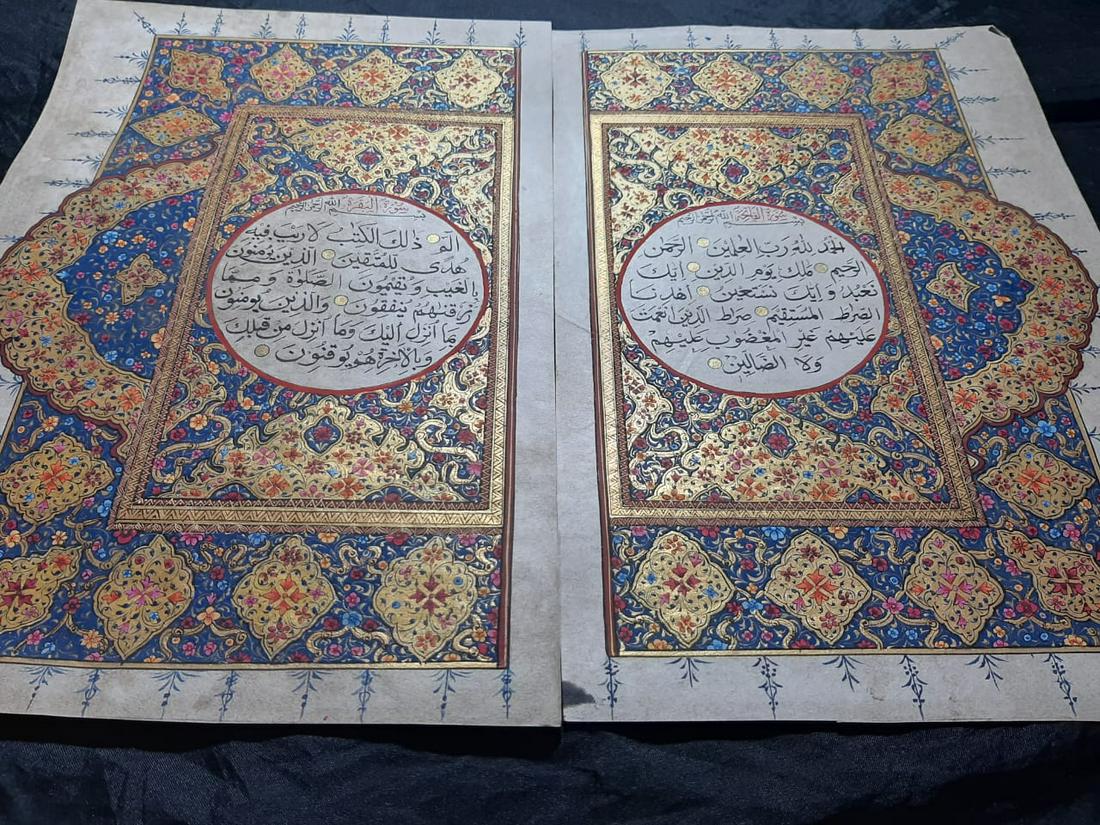 سورة الفاتحة
بسم الله الرحمن الرحيم
الحمد لله رب العلمين الرحمن
الرحيم ملك يوم الدين ايك
نعبد و ايك نستعين اهدنا
الصرط المستقيم صرط الذين انعمت
عليهم غير المغضوب عليهم
ولا الضالين
سورة البقرة
بسم الله الرحمن الرحيم
الم ذلك الكتب لا ريب فيه
هدى للمتقين الذين يومنون
الغيب و يقيمون الصلوة و مما
رزقنهم ينفقون والذين يومنون
بما انزل اليك وما انزل من قبلك
وبالاخرة هم يوقنون